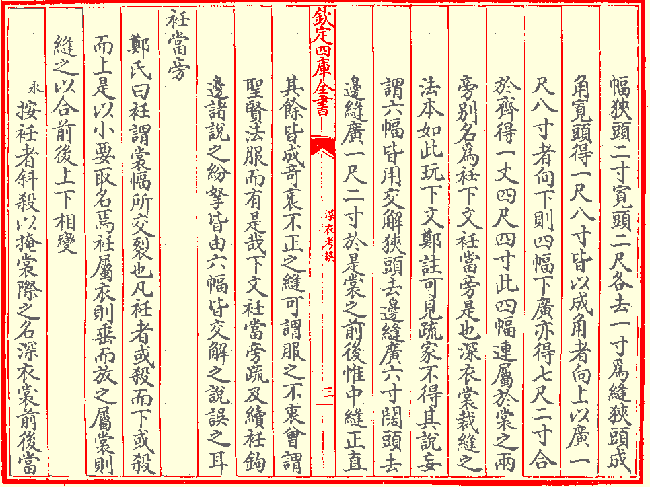 幅狹頭二寸寛頭二尺各去一寸爲縫狹頭成
角寛頭得一尺八寸皆以成角者向上以廣一
尺八寸者向下則四幅下廣亦得七尺二寸合
於齊得一丈四尺四寸此四幅連屬於裳之兩
旁别名爲衽下文衽當旁是也深衣裳裁縫之
法本如此玩下文鄭註可見疏家不得其說妄
謂六幅皆用交解狹頭去邊縫廣六寸闊頭去
邊縫廣一尺二寸於是裳之前後惟中縫正直
欽定四庫全書
深衣考誤
三
其餘皆成奇衺不正之縫可謂服之不衷曾謂
聖賢法服而有是哉下文衽當旁疏及續衽鉤
邊諸說之紛拏皆由六幅皆交解之說誤之耳
衽當旁
鄭氏曰衽謂裳幅所交裂也凡衽者或殺而下或殺
而上是以小要取名焉衽屬衣則垂而放之屬裳則
縫之以合前後上下相變
永按衽者斜殺以掩裳際之名深衣裳前後當